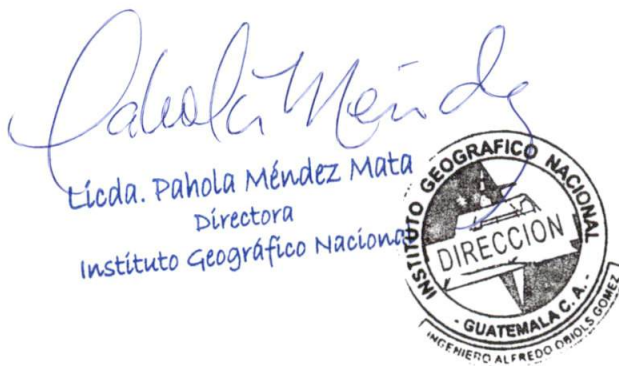 Pahola Méndez
Licda. Pahola Méndez Mata
Directora
Instituto Geográfico Nacional
INSTITUTO GEOGRAFICO NACIONAL
DIRECCION
- GUATEMALA C. A. -
INGENIERO ALFREDO OBIOLS GOMEZ